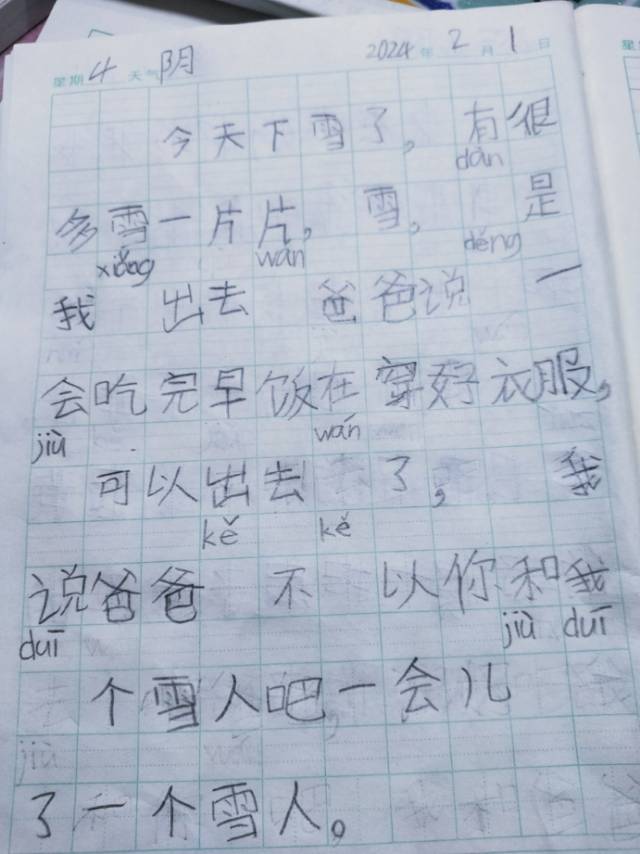 星期 4 天气 阴 2024 年 2 月 1 日
今天下雪了，有很
dàn
多雪一片片，雪，是
xiǎng wán děng
我 出去 爸爸说 一
会吃完早饭在穿好衣服，
jiù wán
可以出去 了，我
kě kě
说爸爸 不 以你和我
duī jiù duī
个雪人吧，一会儿
jiù
了一个雪人。